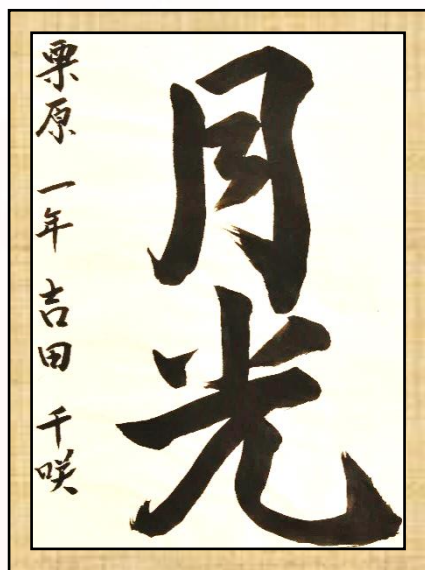 月光
栗原 一年 吉田 千咲